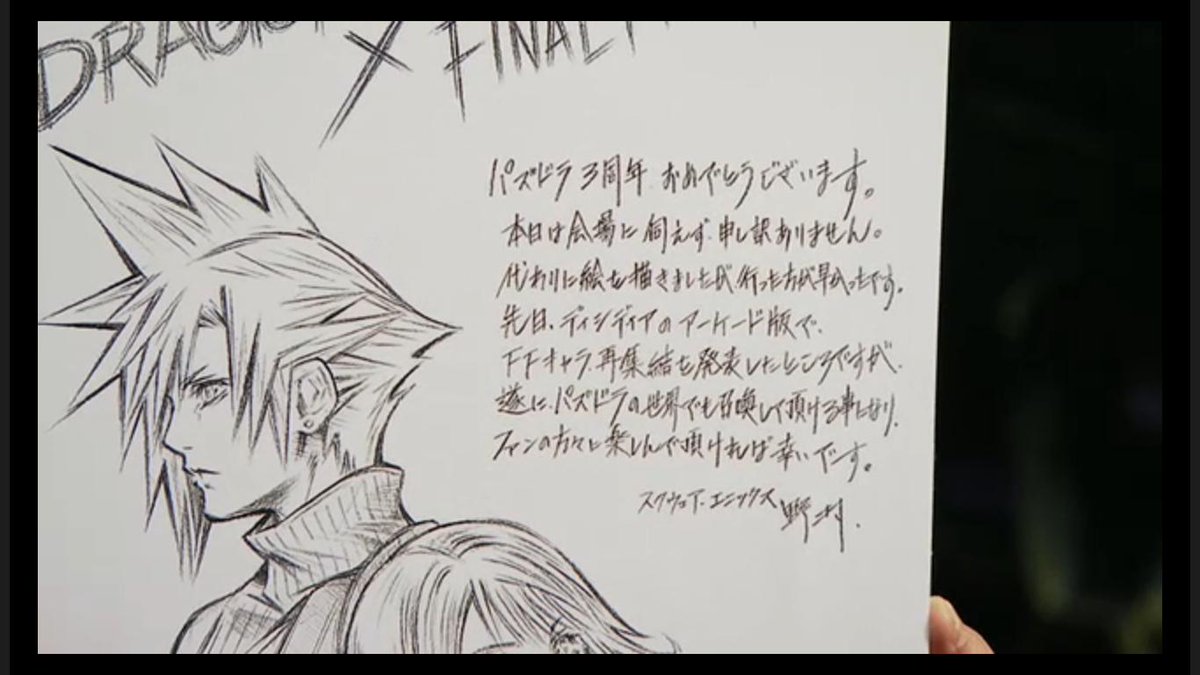 DRAGO
× FINAL F
パズドラ3周年、おめでとうございます。
本日は会場に伺えず、申し訳ありません。
代わりに絵を描きましたが、行った方が早かったです。
先日、ディシディアのアーケード版で、
FFキャラ再集結を発表したところですが、
遂に、パズドラの世界でも召喚して頂ける事になり、
ファンの方々に楽しんで頂ければ幸いです。
スクウェア・エニックス 野村.